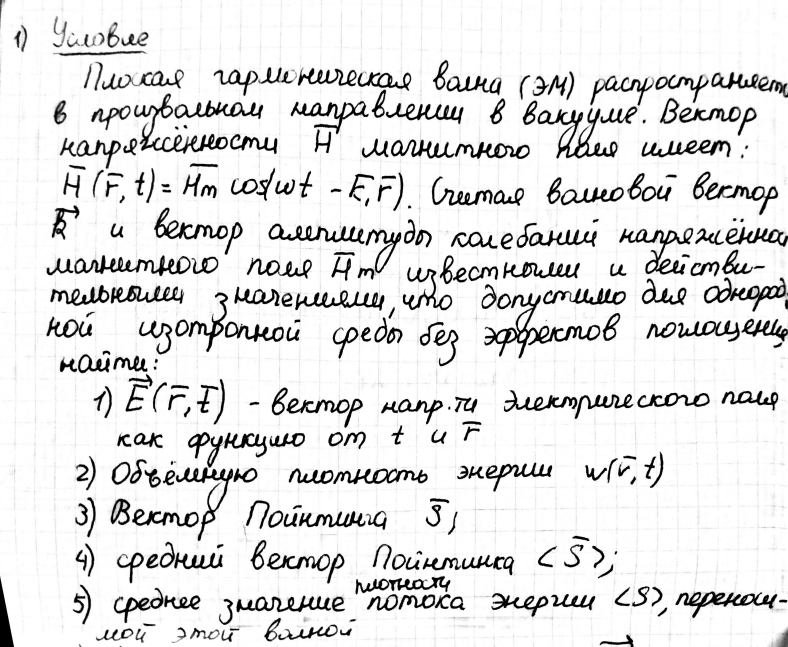 1) Условие
Плоская гармоническая волна (ЭМ) распространяет
в произвольном направлении в вакууме. Вектор
напряжённости H̅ магнитного поля имеет:
H̅ (r̅, t) = H̅m cos(ωt - k̅, r̅). Считая волновой вектор
k⃗ и вектор амплитуды колебаний напряжённо
магнитного поля H̅m известными и действи-
тельными значениями, что допустимо для однород
ной изотропной среды без эффектов поглощения
найти:
1) E⃗ (r̅, t̅) - вектор напр.ти электрического поля
как функцию от t и r̅
2) Объёмную плотность энергии w(r̅, t)
3) Вектор Пойнтинга S̅;
4) средний вектор Пойнтинка <S̅>;
5) среднее значение плотности потока энергии <S>, переноси-
мой этой волной